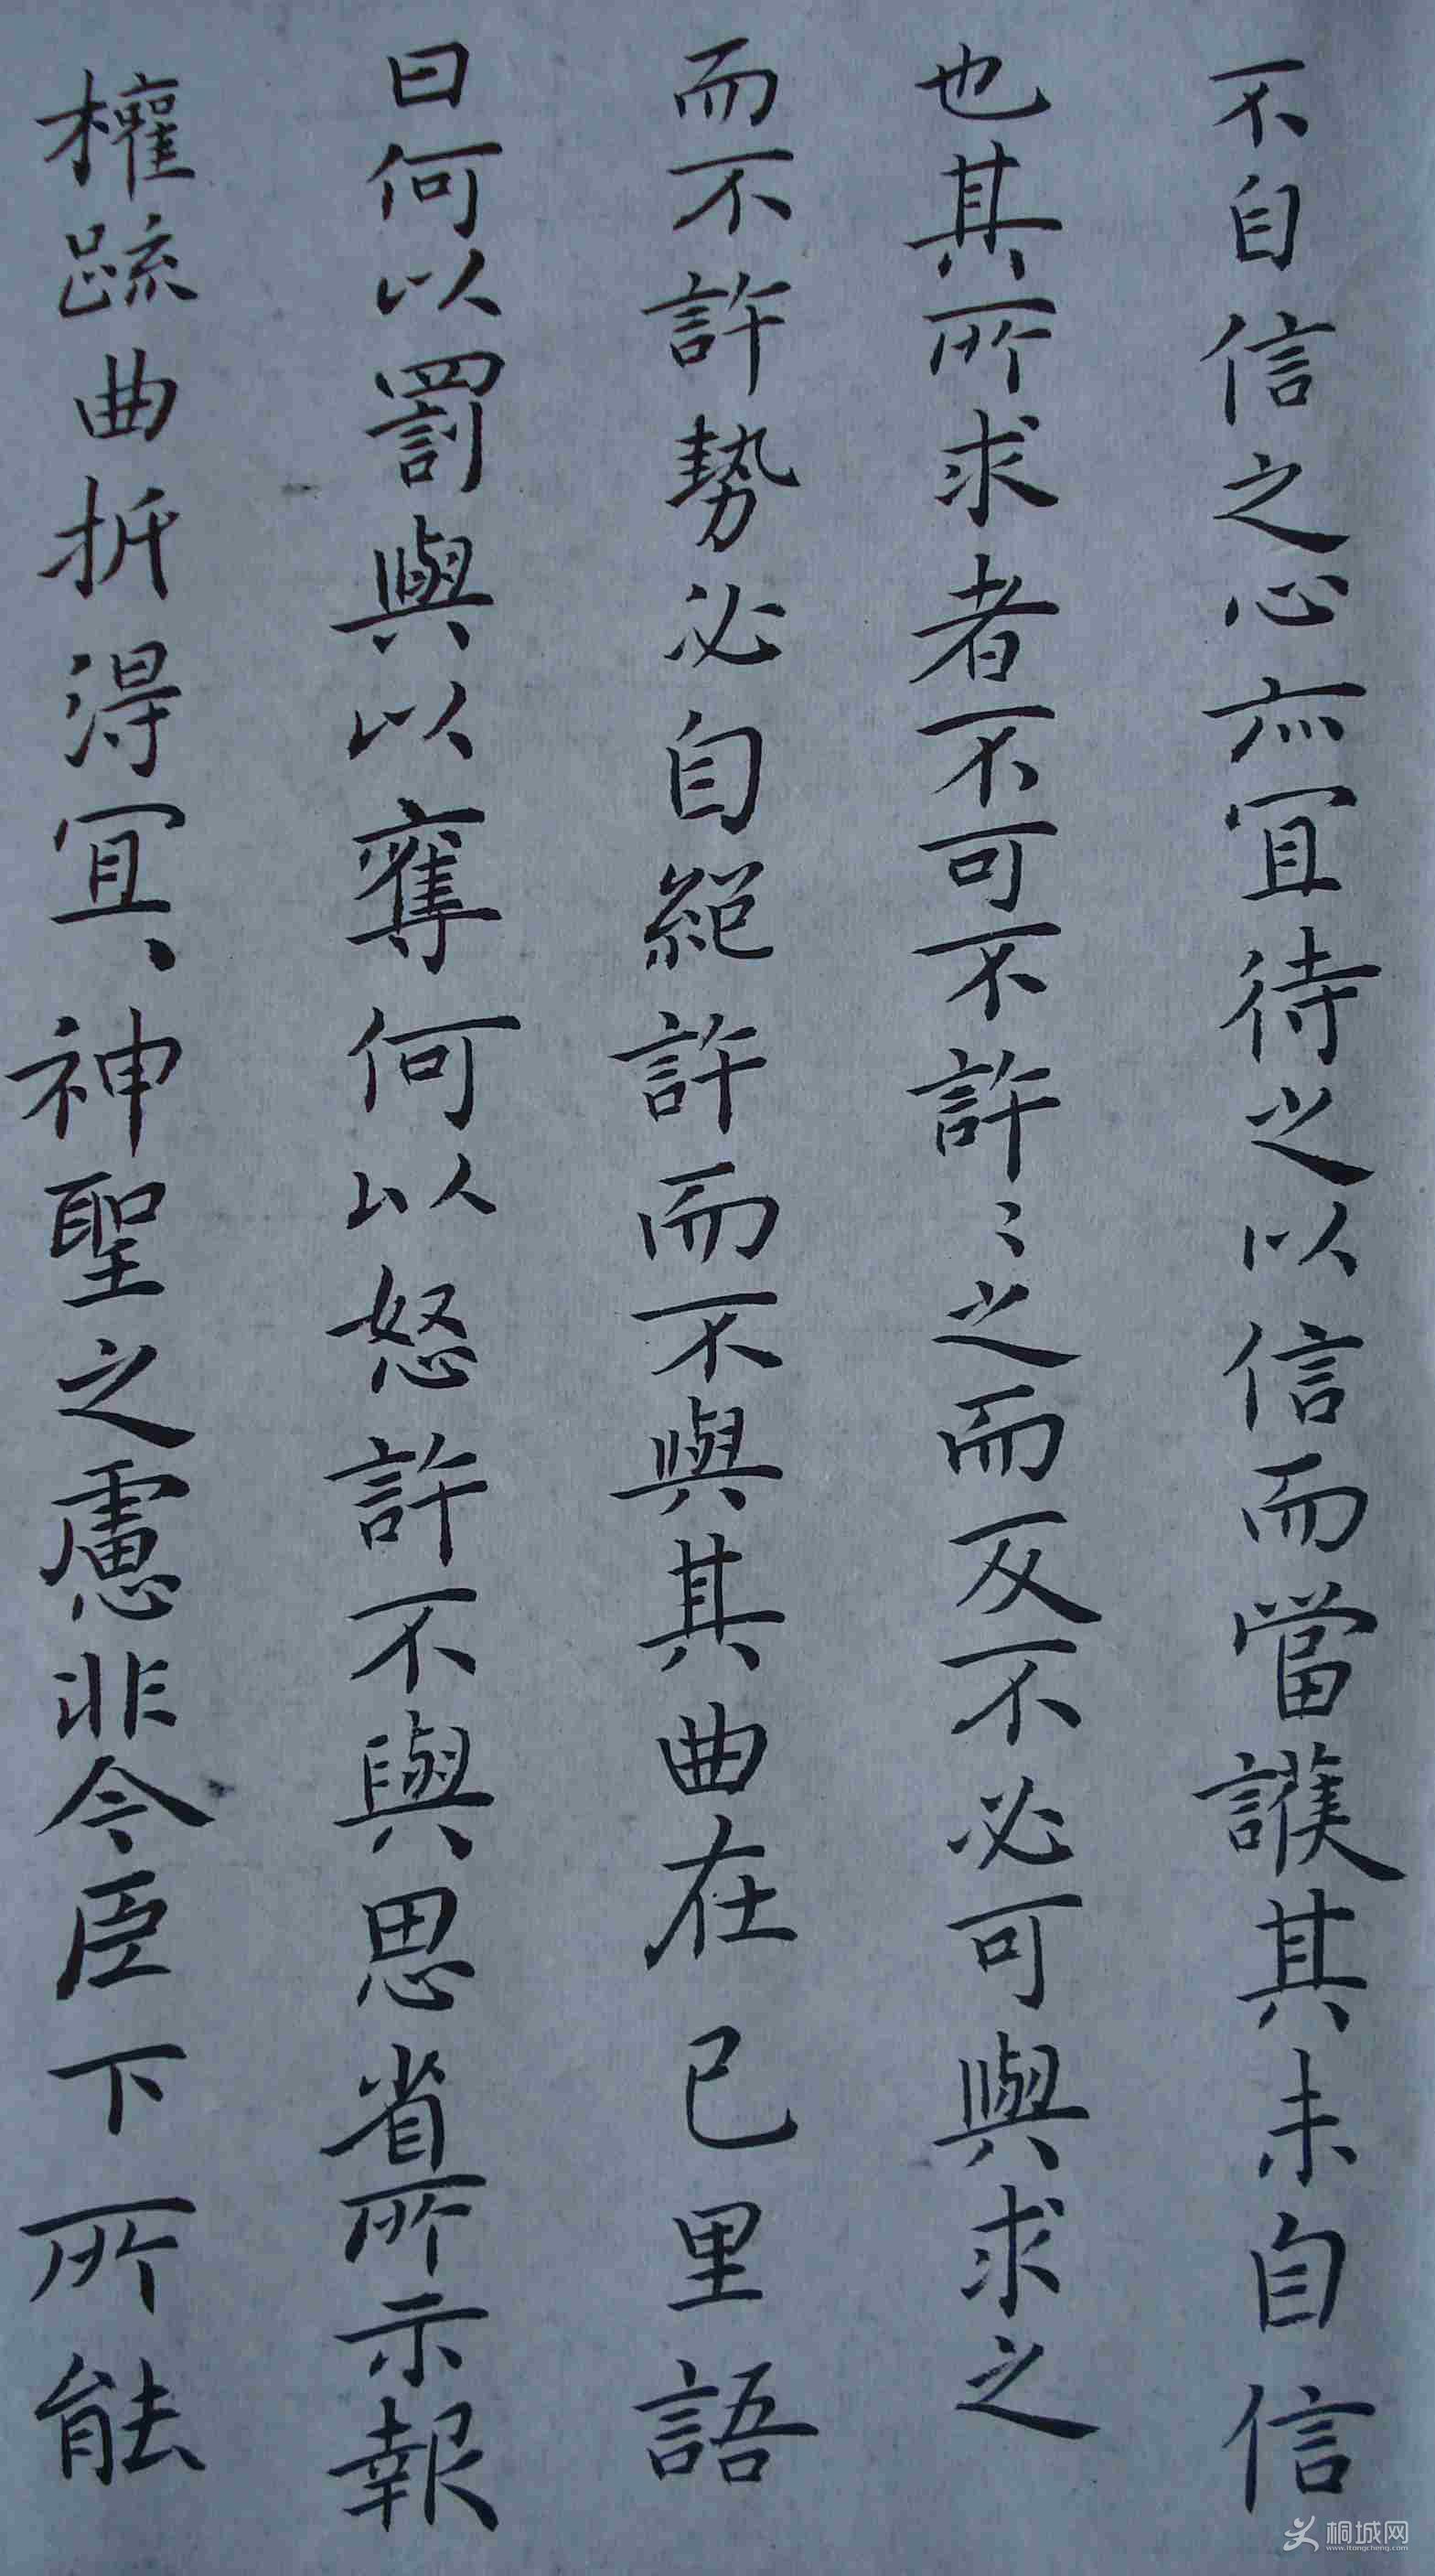 不自信之心亦宜待之以信而當護其未自信
也其所求者不可不許〻之而反不必可與求之
而不許勢必自絕許而不與其曲在己里語
曰何以罰與以奪何以怒許不與思省所示報
權疏曲折得宜、神聖之慮非今臣下所能
桐城网
www.itongcheng.com